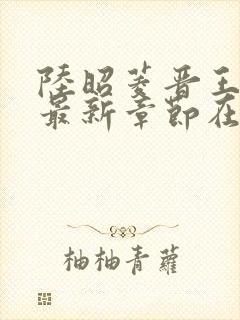 陸昭菱晋王
最新章節在
柚柚青蘿